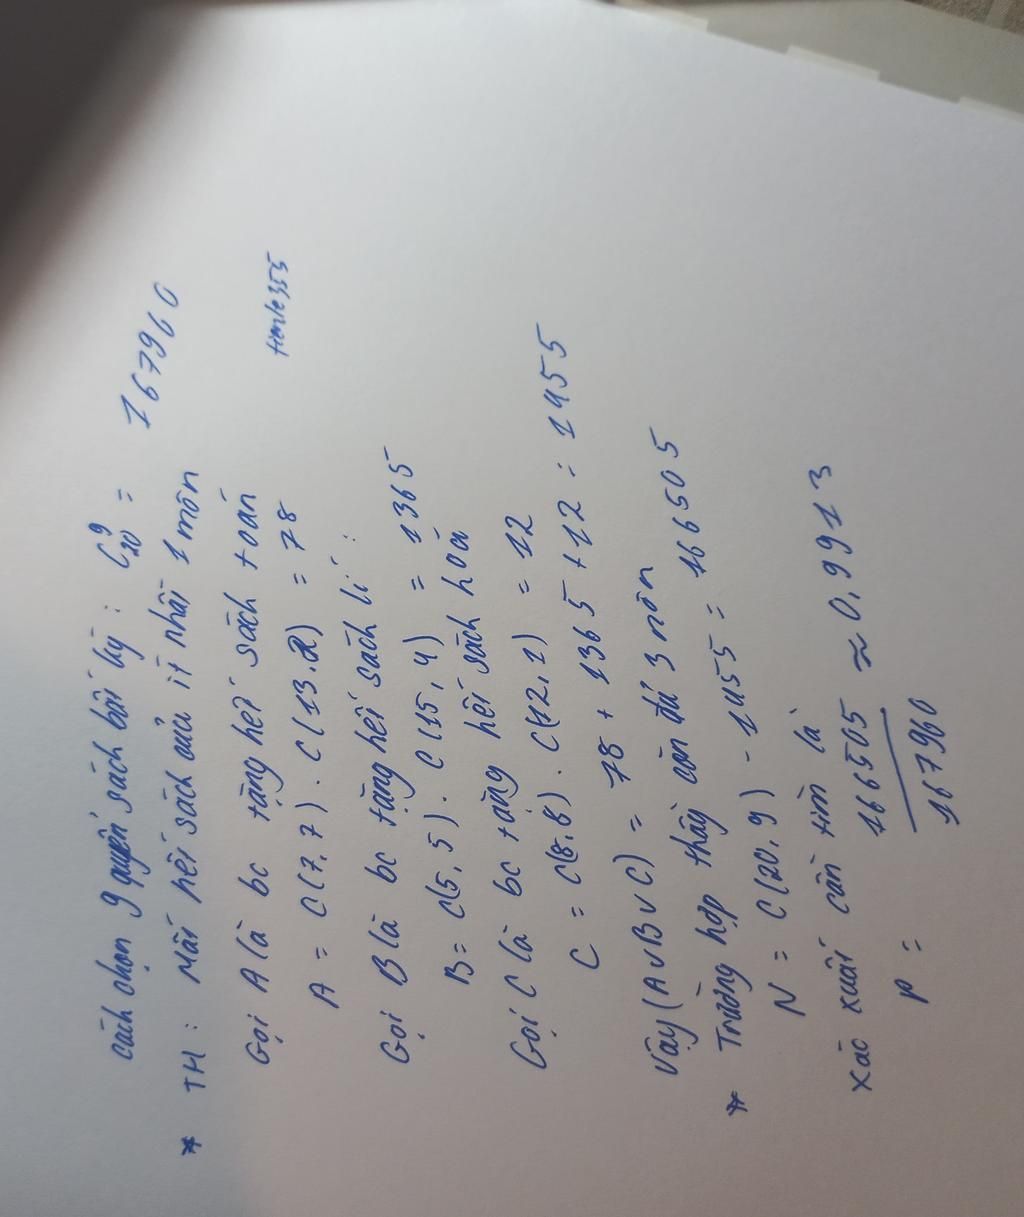 cách chọn 9 quyển sách bất kỳ : C⁹₂₀ = 167960
* TH : Mất hết sách của ít nhất 1 môn
tienle355
Gọi A là bc tặng hết sách toán
A = C(7,7) . C(13.2) = 78
Gọi B là bc tặng hết sách lí :
B = C(5,5) . C(15,4) = 1365
Gọi C là bc tặng hết sách hoá
C = C(8,8) . C(12,1) = 12
Vậy (A∪B∪C) = 78 + 1365 + 12 = 1455
* Trường hợp thầy còn đủ 3 môn
N = C(20,9) - 1455 = 166505
Xác xuất cần tìm là
P = 166505 / 167960 ≈ 0,9913